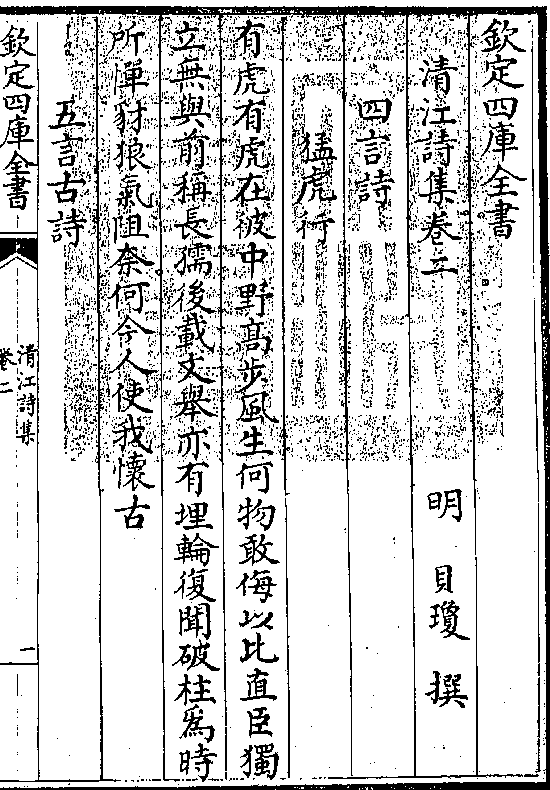 欽定四庫全書
清江詩集卷二
明 貝瓊 撰
四言詩
猛虎行
有虎有虎在彼中野高步風生何物敢侮以比直臣獨
立無與前稱長孺後載文舉亦有埋輪復聞破柱為時
所憚豺狼氣阻奈何今人使我懷古
五言古詩
欽定四庫全書
清江詩集
卷二
一